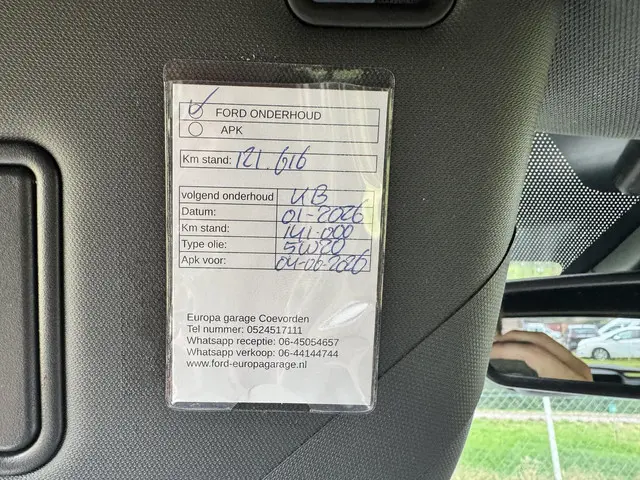 FORD ONDERHOUD
APK
Km stand: 121.616
volgend onderhoud KB
Datum: 01-2026
Km stand: 141.000
Type olie: 5W20
Apk voor: 04-06-2026
Europa garage Coevorden
Tel nummer: 0524517111
Whatsapp receptie: 06-45054657
Whatsapp verkoop: 06-44144744
www.ford-europagarage.nl